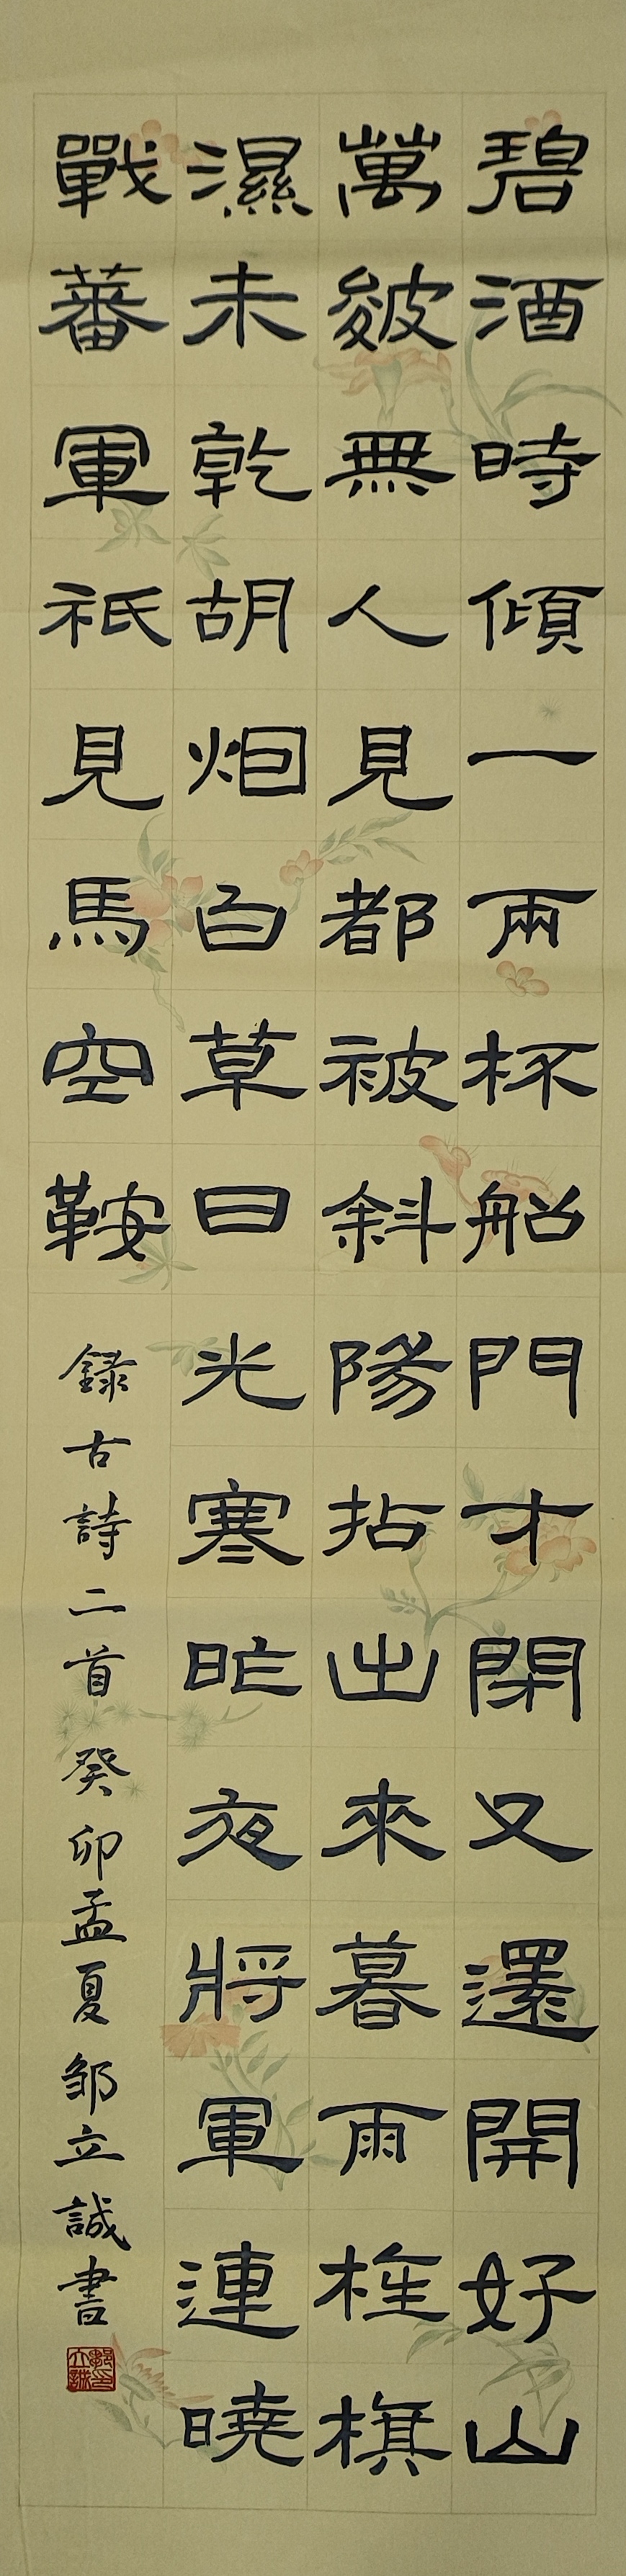 碧酒時傾一兩杯船門才閉又還開好山
萬皴無人見都被斜陽拈出來暮雨旌旗
濕未乾胡烟白草日光寒昨夜將軍連曉
戰蕃軍祇見馬空鞍
錄古詩二首癸卯孟夏邹立誠書